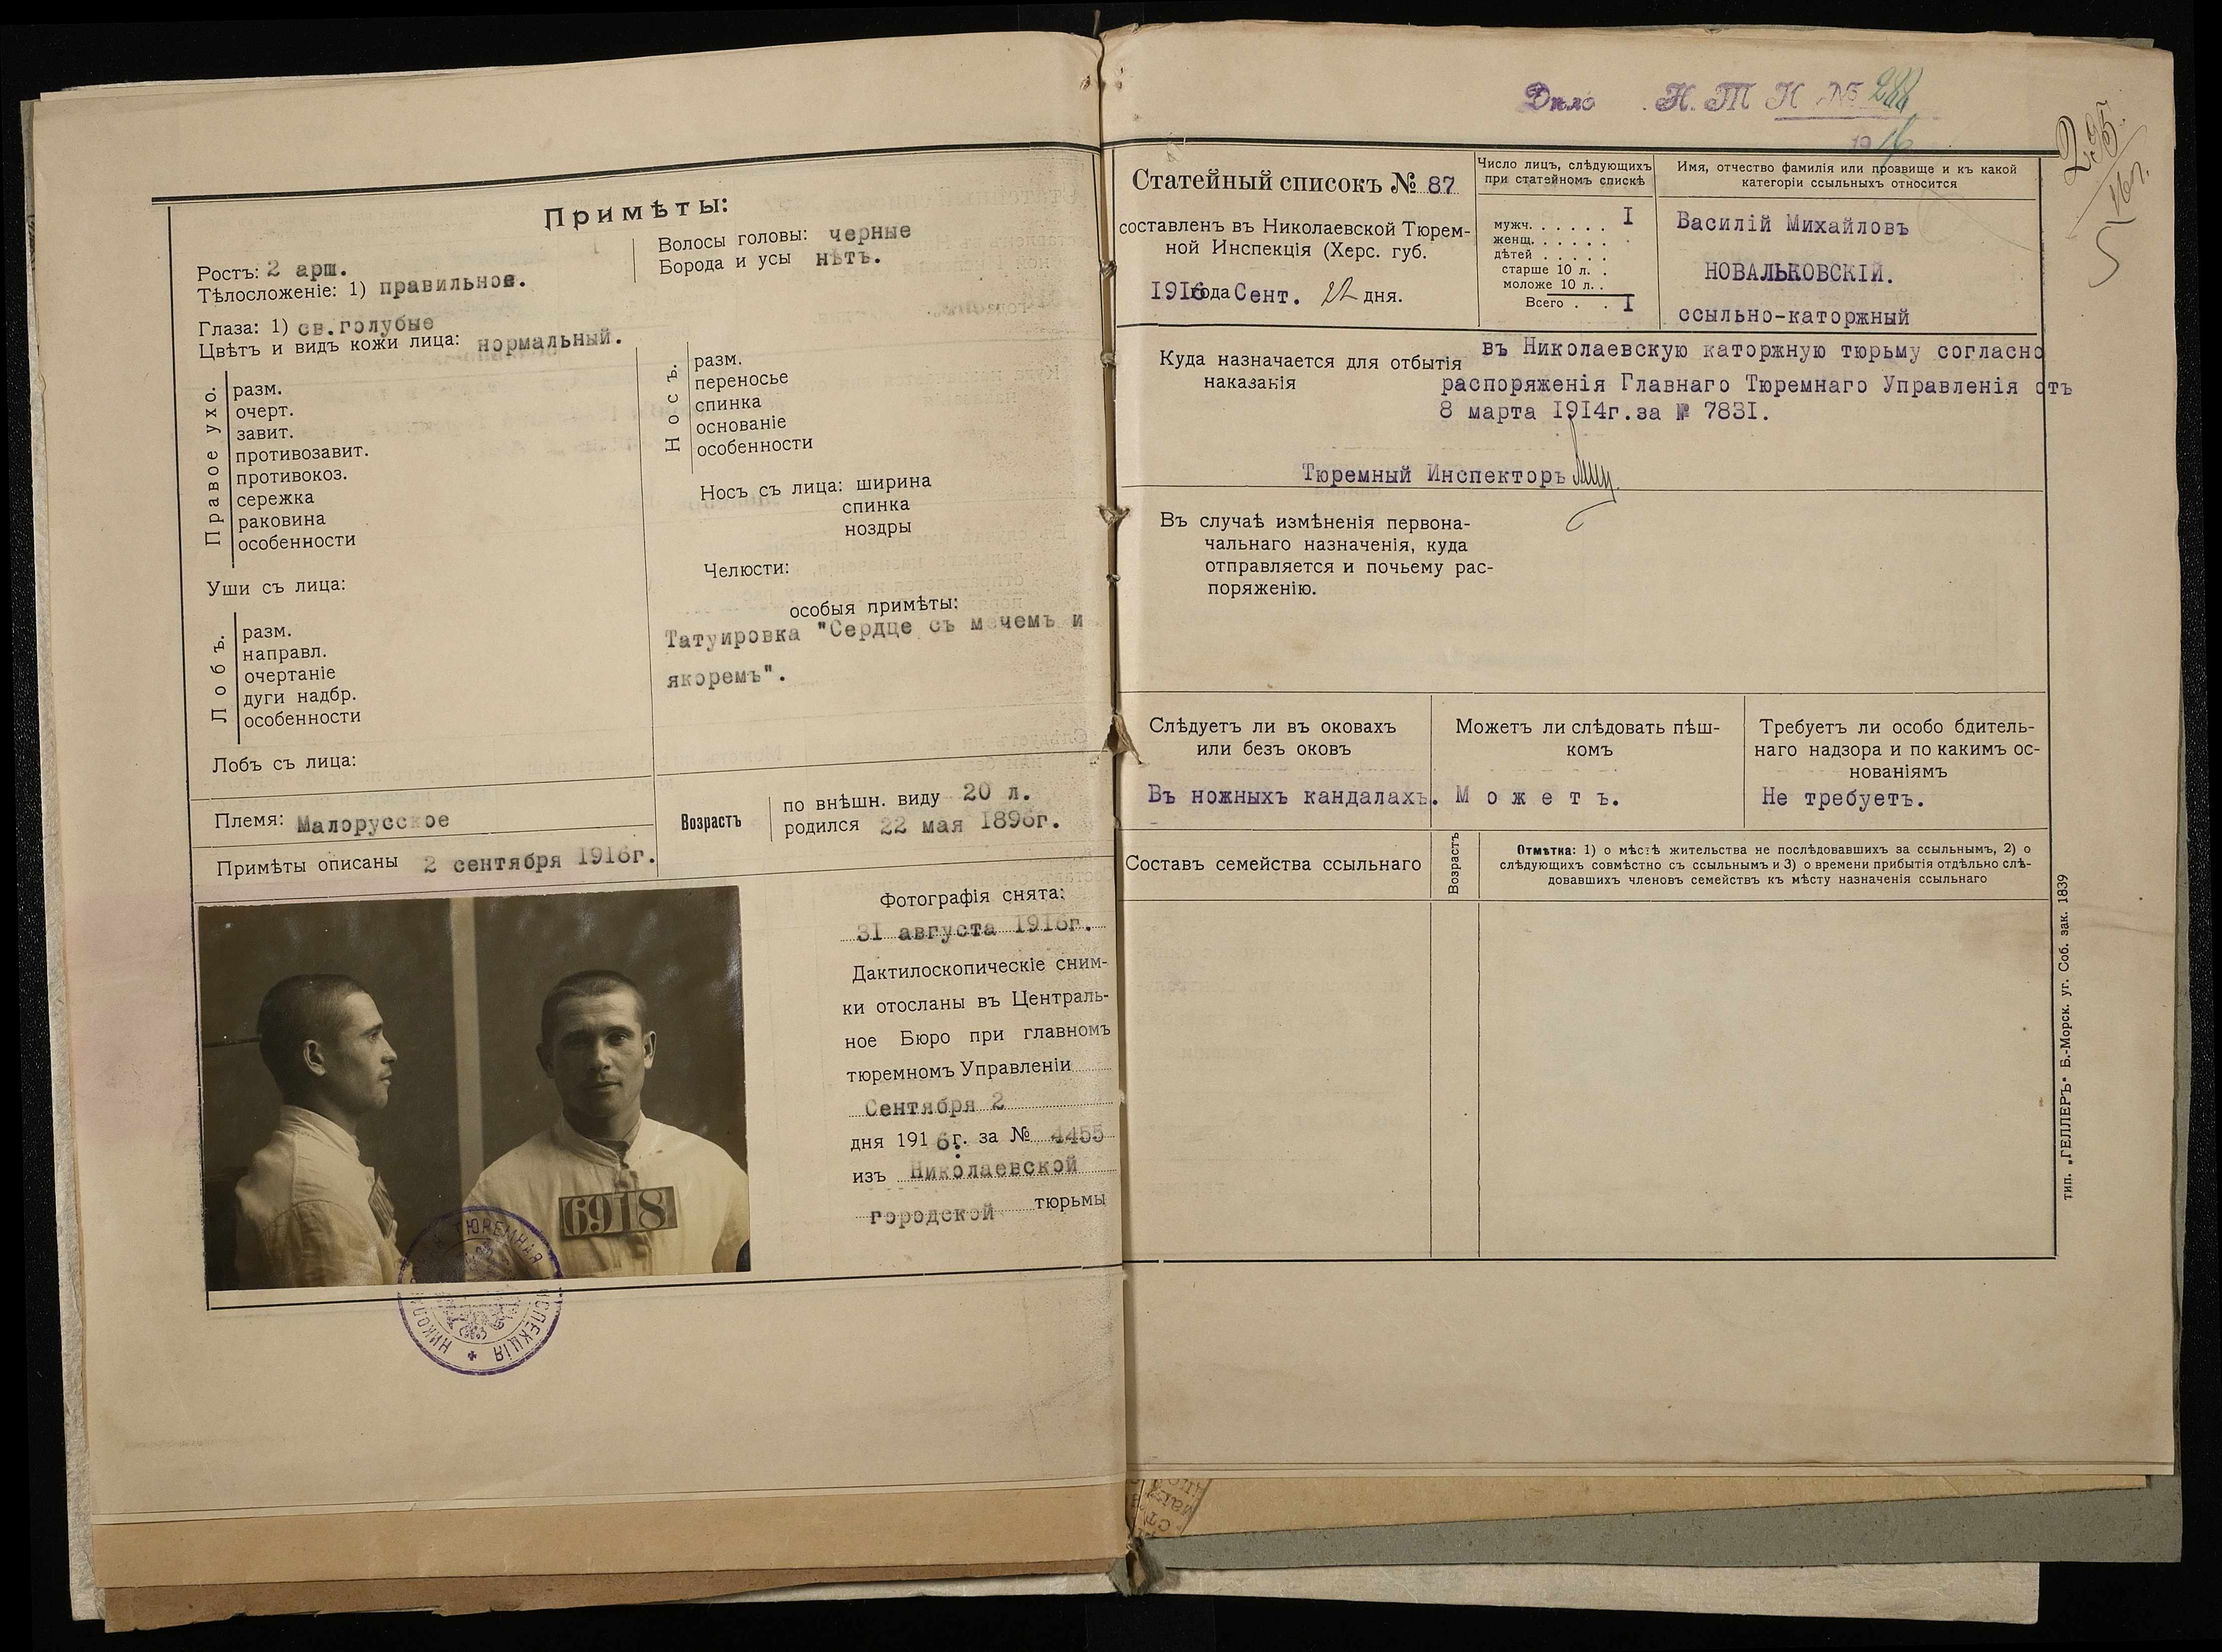 Примѣты:
Ростъ: 2 арш.
Тѣлосложеніе: 1) правильное.
Волосы головы: черные
Борода и усы нѣтъ.
Глаза: 1) св.голубые
Цвѣтъ и видъ кожи лица: нормальный.
Правое ухо.
разм.
очерт.
завит.
противозавит.
противокоз.
сережка
раковина
особенности
Уши съ лица:
Лобъ.
разм.
направл.
очертаніе
дуги надбр.
особенности
Лобъ съ лица:
Носъ.
разм.
переносье
спинка
основаніе
особенности
Носъ съ лица: ширина
спинка
ноздры
Челюсти:
особыя примѣты:
Татуировка "Сердце съ мечемъ и
якоремъ".
Племя: Малорусское
Возрастъ
по внѣшн. виду 20 л.
родился 22 мая 1896г.
Примѣты описаны 2 сентября 1916г.
Фотографія снята:
31 августа 1916г.
Дактилоскопическіе сним-
ки отосланы въ Централь-
ное Бюро при главномъ
тюремномъ Управленіи
Сентября 2
дня 1916г. за № 4455
изъ Николаевской
городской тюрьмы
6918
ТЮРЕМНАЯ
Дѣло Н. Т И № 288
1916
295
16г.
5
Статейный списокъ № 87
составленъ въ Николаевской Тюрем-
ной Инспекція (Херс. губ.
1916 года Сент. 22 дня.
Число лицъ, слѣдующихъ
при статейномъ спискѣ
мужч. . . . . . I
женщ. . . . . . .
дѣтей . . . . .
старше 10 л. .
моложе 10 л. .
Всего . . I
Имя, отчество фамилія или прозвище и къ какой
категоріи ссыльныхъ относится
Василій Михайловъ
НОВАЛЬКОВСКІЙ.
ссыльно-каторжный
Куда назначается для отбытія
наказанія
въ Николаевскую каторжную тюрьму согласно
распоряженія Главнаго Тюремнаго Управленія отъ
8 марта 1914г.за № 7831.
Тюремный Инспекторъ
Въ случаѣ измѣненія первона-
чальнаго назначенія, куда
отправляется и почьему рас-
поряженію.
Слѣдуетъ ли въ оковахъ
или безъ оковъ
Въ ножныхъ кандалахъ.
Можетъ ли слѣдовать пѣш-
комъ
Можетъ.
Требуетъ ли особо бдитель-
наго надзора и по какимъ ос-
нованіямъ
Не требуетъ.
Составъ семейства ссыльнаго
Возрастъ
Отмѣтка: 1) о мѣстѣ жительства не послѣдовавшихъ за ссыльнымъ, 2) о
слѣдующихъ совмѣстно съ ссыльнымъ и 3) о времени прибытія отдѣльно слѣ-
довавшихъ членовъ семействъ къ мѣсту назначенія ссыльнаго
тип. „ГЕЛЛЕРЪ" Б.-Морск. уг. Соб. зак. 1839